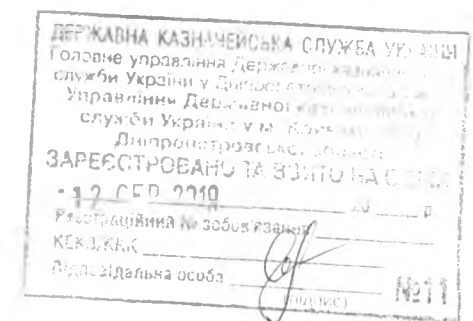 ДЕРЖАВНА КАЗНАЧЕЙСЬКА СЛУЖБА УКРАЇНИ
Головне управління Державної
служби України у
Управління Державної
служби України у м.
Дніпропетровської області
ЗАРЕЄСТРОВАНО ТА ВЗЯТО НА
12 СЕР 2019 20 р.
Реєстраційний № зобов'язання
КЕКВ, КБК
Відповідальна особа
(підпис)
№11